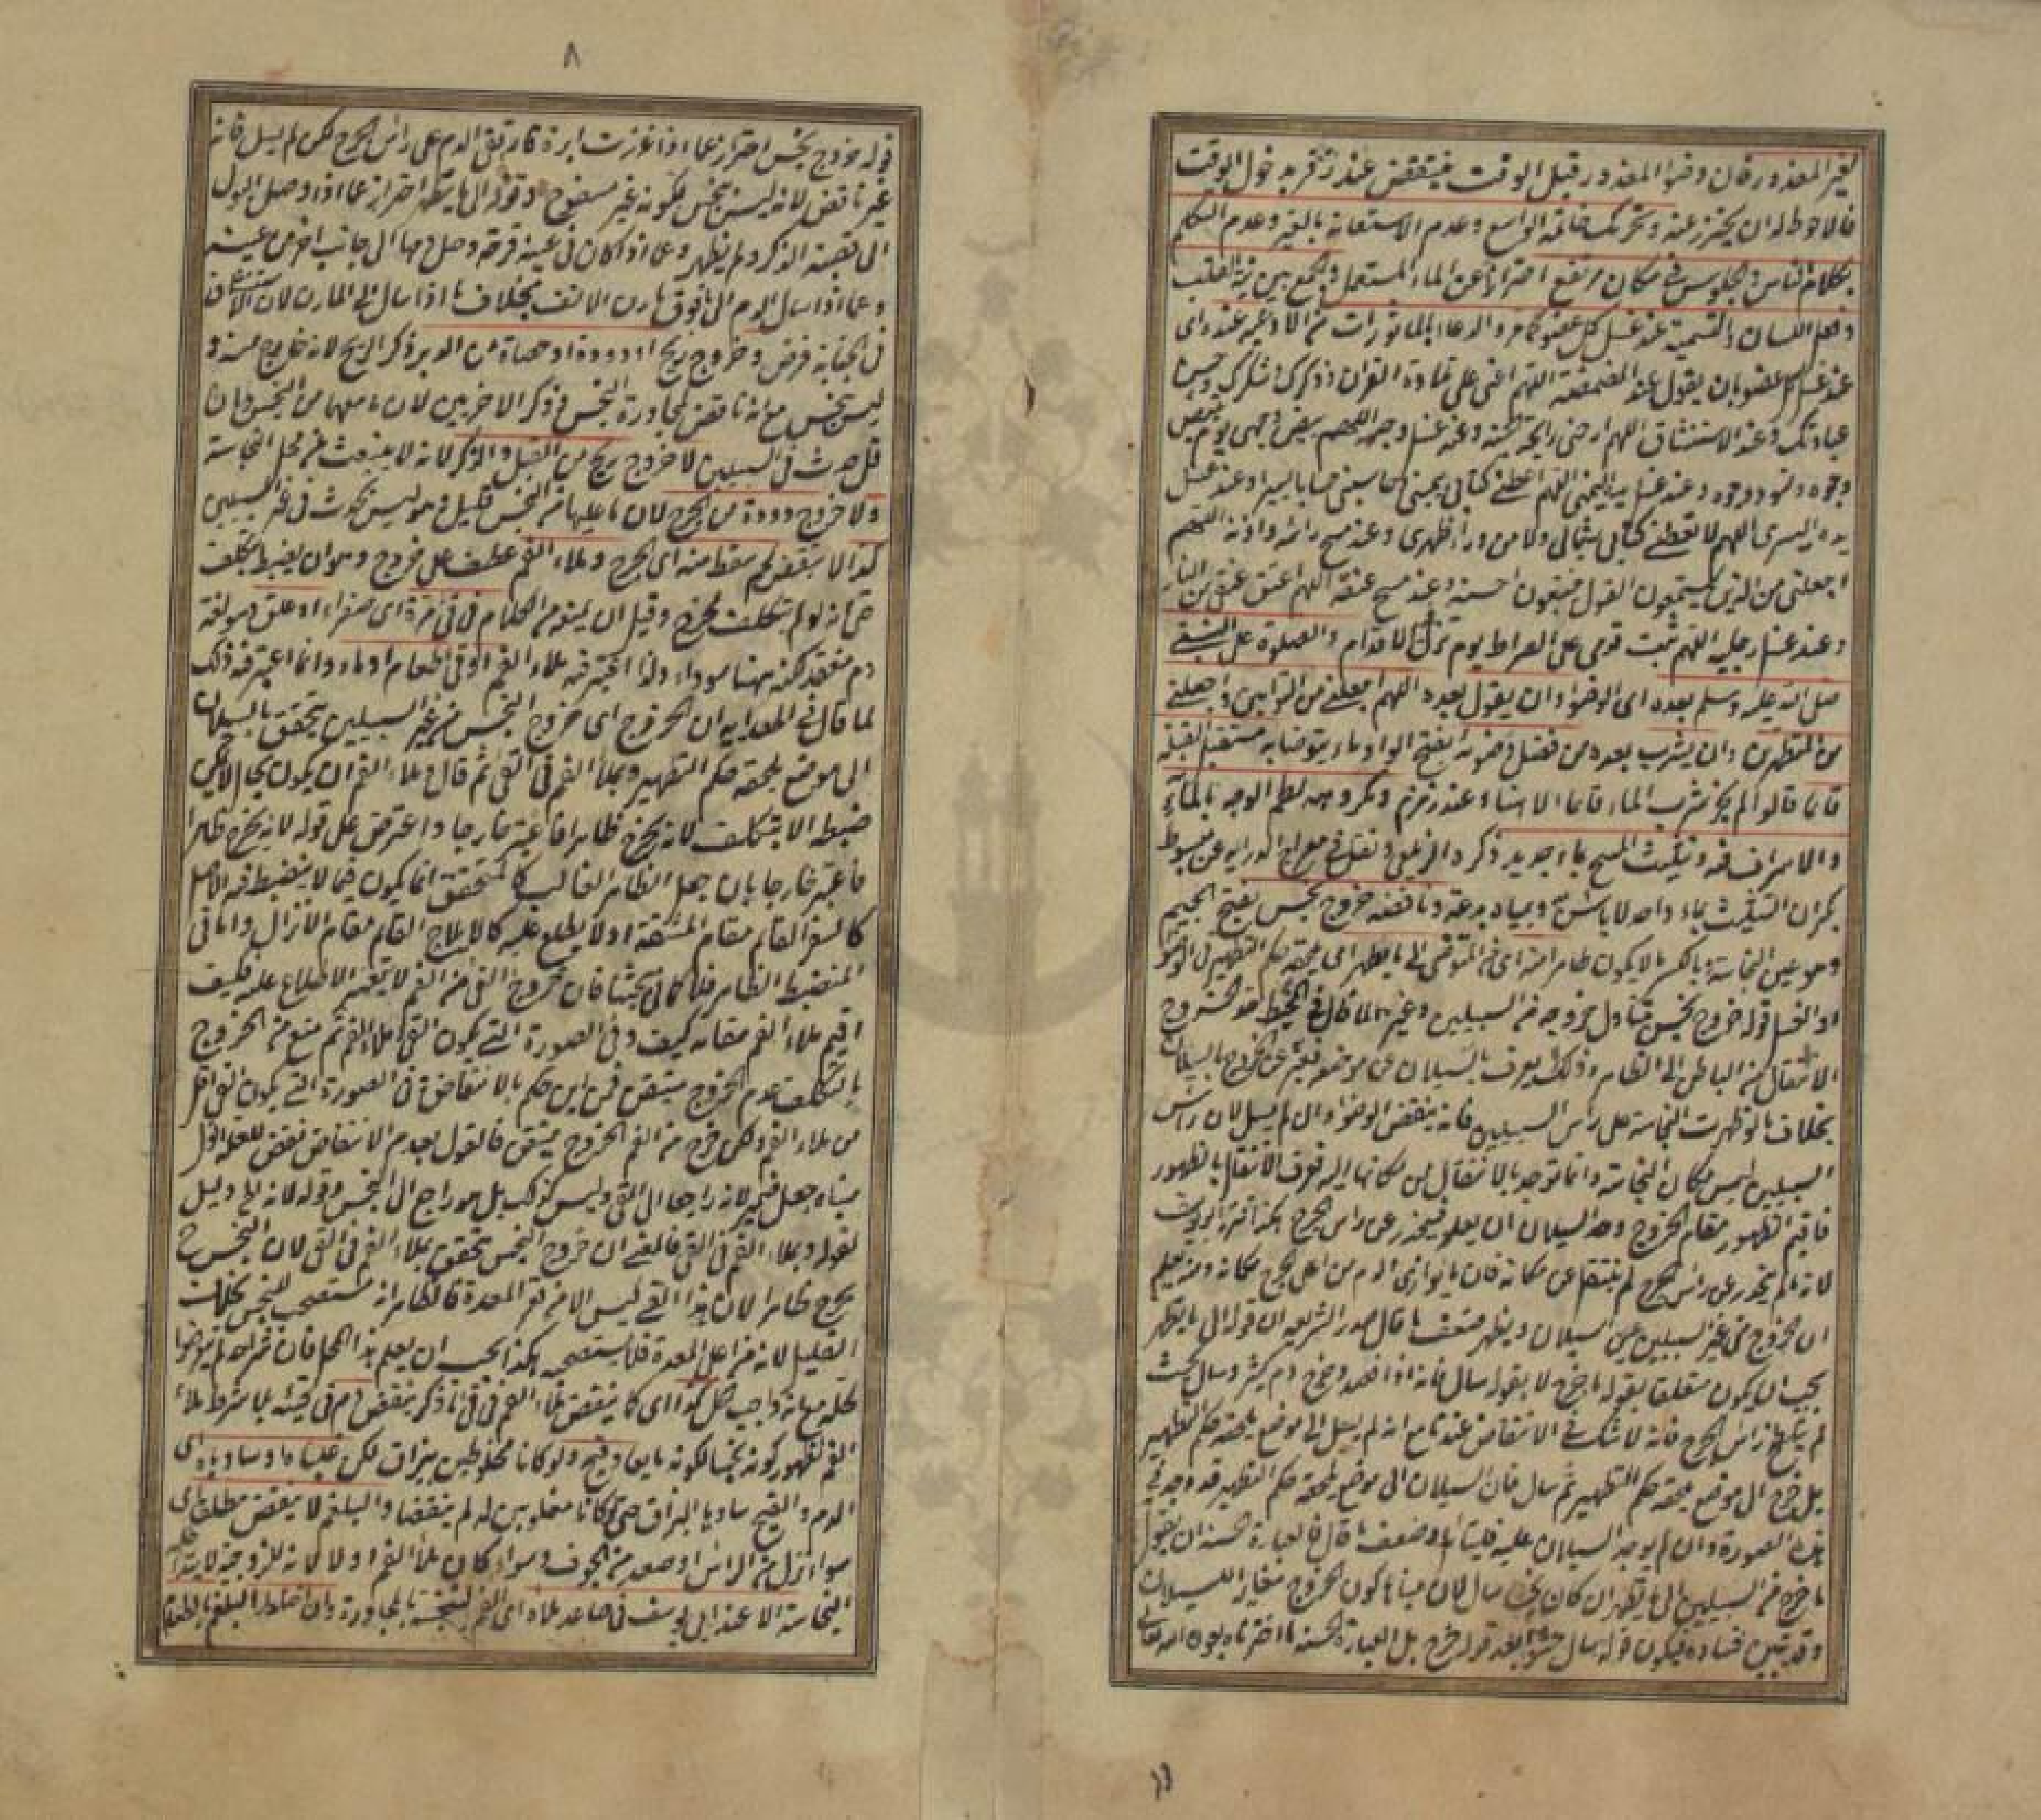 لغير المعذور فان وضوء المعذور قبل الوقت ينتقض عند زفر بدخول الوقت
فالاحوط له ان يحترز عنه وتحريك خاتمه الواسع وعدم الاستعانة بالغير وعدم التكلم
بكلام الناس والجلوس في مكان مرتفع احترازا عن الماء المستعمل والجمع بين نية القلب
وفعل اللسان والتسمية عند غسل كل عضو كما مر والدعاء بالماثورات من الادعية عنده اى
عند غسل كل عضو بان يقول عند المضمضة اللهم اعنى على تلاوة القران وذكرك وشكرك وحسن
عبادتك وعند الاستنشاق اللهم ارحنى رايحة الجنة وعند غسل وجهه اللهم بيض وجهى يوم تبيض
وجوه وتسود وجوه وعند غسل يده اليمنى اللهم اعطنى كتابى بيمينى وحاسبنى حسابا يسيرا وعند غسل
يده اليسرى اللهم لا تعطنى كتابى بشمالى ولا من وراء ظهرى وعند مسح راسه واذنه اللهم
اجعلنى من الذين يستمعون القول فيتبعون احسنه وعند مسح عنقه اللهم اعتق عنقى من النار
وعند غسل رجليه اللهم ثبت قدمى على الصراط يوم تزل الاقدام والصلوة على النبى
صلى الله عليه وسلم بعده اى الوضوء وان يقول بعده اللهم اجعلنى من التوابين واجعلنى
من المتطهرين وان يشرب بعده من فضل وضوئه بفتح الواو ماء يتوضا به مستقبل القبلة
قائما قالوا لم يجز شرب الماء قائما الا هنا وعند زمزم ومكروهه لطم الوجه بالماء
والاسراف فيه وتثليث المسح بماء جديد ذكره الزيلعى ونقل فى معراج الدراية عن مبسوط
بكر ان التثليث بماء واحد لا باس به وبمياه بدعة وناقضه خروج نجس بفتح الجيم
وهو عين النجاسة وبالكسر ما لا يكون طاهرا منه اى من المتوضى الى ما يطهر اى يلحقه حكم التطهير فى الوضوء
او الغسل قوله خروج نجس يتناول خروجه من السبيلين وغيرهما قال فى المحيط حد الخروج
الانتقال من الباطن الى الظاهر وذلك يعرف بالسيلان من موضعه فيعبر عن الخروج بالسيلان
بخلاف ما لو ظهرت النجاسة على راس السبيلين فانه ينقض الوضوء وان لم يسل لان راس
السبيلين ليس مكان النجاسة وانما توجد بالانتقال من مكانها اليه فعرف الانتقال بالظهور
فاقيم الظهور مقام الخروج وحد السيلان ان يعلو فينحدر عن راس الجرح هكذا فسره ابو يوسف
لانه ما لم ينحدر عن راس الجرح لم ينتقل عن مكانه فان ما يوازى الدم من اعلى الجرح مكانه ومنه يعلم
ان الخروج فى غير السبيلين عين السيلان ويظهر ضعف ما قال صدر الشريعة ان قوله الى ما يطهر
يجب ان يكون متعلقا بقوله ما خرج لا بقوله سال فانه اذا فصد وخرج دم كثير وسال بحيث
لم يتلطخ راس الجرح فانه لا شك فى الانتقاض عندنا مع انه لم يسل الى موضع يلحقه حكم التطهير
بل خرج الى موضع يلحقه حكم التطهير ثم سال فان السيلان الى موضع يلحقه حكم التطهير قد وجد فى
هذه الصورة وان لم يوجد السيلان عليه فليتامل وضعف ما قال فالعبارة الحسنة ان يقول
ما خرج من السبيلين الى ما يطهر ان كان نجسا سال لان مبناه كون الخروج مغاير السيلان
وقد تبين فساده فيكون قوله سال حشوا بعد قوله خرج بل العبارة الحسنة ما اخترناه بعون الله تعالى
٨
قوله خروج نجس احتراز عما اذا غرزت ابرة فارتقى الدم على راس الجرح لكن لم يسل فانه
غير ناقض لانه ليس بنجس لكونه غير مسفوح وقوله الى ما يطهر احتراز عما اذا وصل البول
الى قصبة الذكر ولم يظهر وعما اذا كان فى عينه قرحة وصل دمها الى جانب اخر من عينه
وعما اذا سال الدم الى ما فوق مارن الانف بخلاف ما اذا سال الى المارن لان الاستنشاق
فى الجنابة فرض وخروج ريح او دودة او حصاة من الدبر ذكر الريح لانه خارج منه و
ليس بنجس مع انه ناقض لمجاورة النجس وذكر الاخريين لان ما معهما من النجس وان
قل حدث فى السبيلين لا خروج ريح من القبل والذكر لانه لا ينبعث عن محل النجاسة
ولا خروج دودة من الجرح لان ما عليها من النجس قليل وهو ليس بحدث فى غير السبيلين
كذا لا ينقض لحم سقط منه اى الجرح وملاء الفم عطف على خروج وهو ان يضبط بتكلف
حتى انه لو لم يتكلف لخرج وقيل ان يمنع من الكلام فى قئ مرة اى صفراء او علق هو لغة
دم منعقد لكنه ههنا سوداء ولذا اعتبر فيه ملاء الفم او قئ طعام او ماء وانما اعتبر فيه ذلك
لما قال فى الهداية ان الخروج اى خروج النجس من غير السبيلين يتحقق بالسيلان
الى موضع يلحقه حكم التطهير وبملأ الفم فى القئ ثم قال وملاء الفم ان يكون بحال لا يمكن
ضبطه الا بتكلف لانه يخرج ظاهرا فاعتبر خارجا واعترض على قوله لانه يخرج ظاهرا
فاعتبر خارجا بان جعل الظاهر الغالب كالمتحقق انما يكون فيما لا ينضبط فيه الاصل
كالسفر القائم مقام المشقة او لا يطلع عليه كالايلاج القائم مقام الانزال واما فى
المنضبط الظاهر فلا كما فى بحثنا فان خروج القئ من الفم لا يتعسر الاطلاع عليه فكيف
اقيم ملاء الفم مقامه كيف وفى الصورة التى يكون القئ ملاء الفم ثم منع من الخروج
بالتكلف عدم الخروج متيقن فمن اين حكم بالانتقاض وفى الصورة التى يكون القئ اقل
من ملاء الفم ولكن خرج من الفم الخروج متيقن فالقول بعدم الانتقاض نقض للعلة اقول
مبناه جعل ضمير لانه راجعا الى القئ وليس كذلك بل هو راجع الى النجس وقوله لانه الخ دليل
لقوله وبملاء الفم فى القئ فالمعنى ان خروج النجس يتحقق بملاء الفم فى القئ لان النجس ح
يخرج ظاهرا لان هذا القئ ليس الا من قعر المعدة فالظاهر انه مستصحب للنجس بخلاف
القليل لانه من اعلى المعدة فلا يستصحبه هكذا يجب ان يعلم هذا المحل فان شراحه لم يتعرضوا
لحله مع انه واجب كل كذا اى كما ينقض ملاء الفم فى قئ ما ذكر ينقض دم فى قيئه بلا شرط ملاء
الفم لظهور كونه نجسا لكونه مائعا وقيح ولو كانا مخلوطين ببزاق لكن غلباه او ساوياه اى
الدم والقيح ساويا البزاق حتى لو كانا مغلوبين له لم ينقضا والبلغم لا ينقض مطلقا اى
سواء نزل من الراس او صعد من الجوف وسواء كان ملأ الفم او لا لانه للزوجته لا يتداخله
النجاسة الا عند ابى يوسف فى صاعد ملاءه اى الفم لتنجسه بالمجاورة وان اختلط البلغم بالطعام